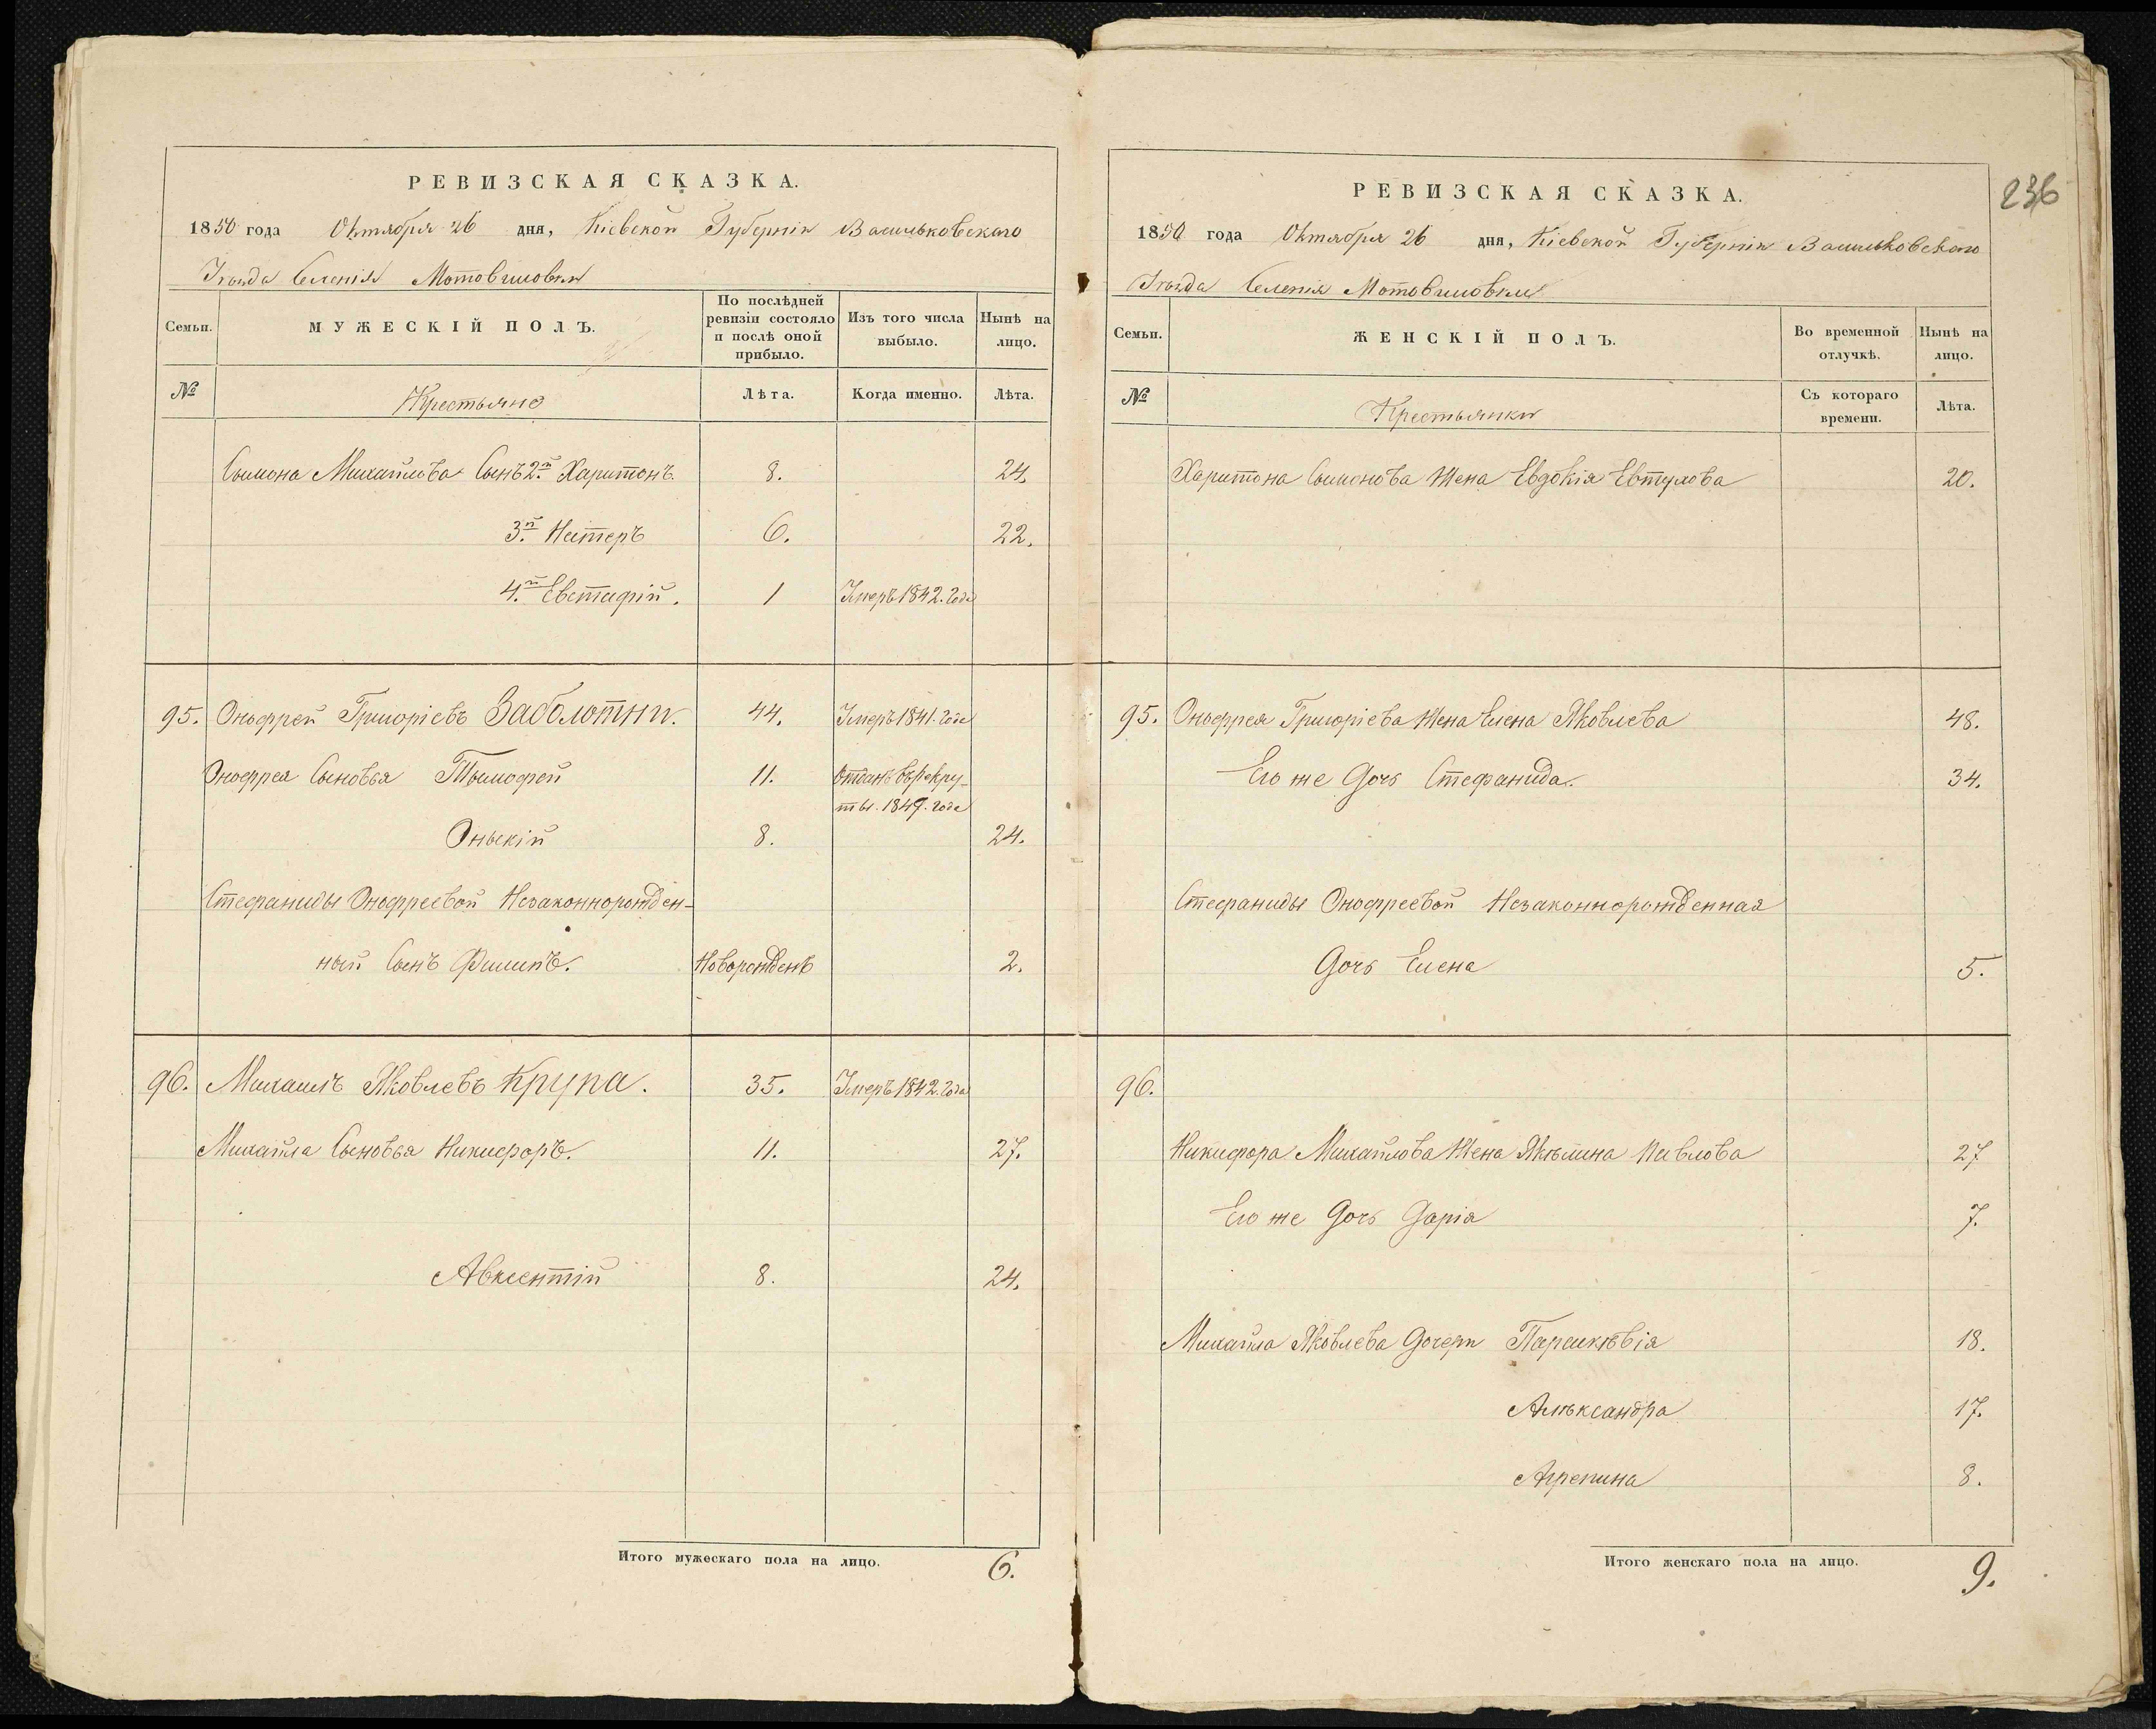 РЕВИЗСКАЯ СКАЗКА.
1850 года Октября 26 дня, Кіевской Губерніи Васильковскаго
Уѣзда Селенія Мотовиловки
Семьи.
МУЖЕСКІЙ ПОЛЪ.
По послѣдней
ревизіи состояло
и послѣ оной
прибыло.
Изъ того числа
выбыло.
Нынѣ на
лицо.
№
Крестьяне
Лѣта.
Когда именно.
Лѣта.
Сымона Михайлова Сынъ 2.й Харитонъ. 8. 24.
3.й Нестеръ 6. 22.
4.й Евстафій. 1 Умеръ 1842. Года
95. Оноφрей Григоріевъ Заболотни. 44. Умеръ 1841. Года
Онофрея Сыновья Тымофей 11. Отданъ въ рекру-
ты. 1849. года
Оньскій 8. 24.
Стефаниды Онофреевой Незаконнорожден-
ный Сынъ Филипъ. Новорожденъ 2.
96. Михаилъ Яковлевъ Крупа. 35. Умеръ 1842. Года
Михайла Сыновья Никифоръ. 11. 27.
Авксентій 8. 24.
Итого мужескаго пола на лицо. 6.
236
РЕВИЗСКАЯ СКАЗКА.
1850 года Октября 26 дня, Кіевской Губерніи Васильковскаго
Уѣзда Селенія Мотовиловки
Семьи.
ЖЕНСКІЙ ПОЛЪ.
Во временной
отлучкѣ.
Нынѣ на
лицо.
№
Крестьянки
Съ котораго
времени.
Лѣта.
Харитона Сымонова Жена Евдокія Евтухова 20.
95. Онофрея Григоріева Жена Елена Яковлева 48.
Его же Дочь Стефанида. 34.
Стефаниды Онофреевой Незаконнорожденная
Дочь Елена 5.
96.
Никифора Михайлова Жена Якылина Павлова 27
Его же Дочь Дарія 7.
Михайла Яковлева Дочери Параскѣвія 18.
Алѣксандра 17.
Агрепина 8.
Итого женскаго пола на лицо. 9.